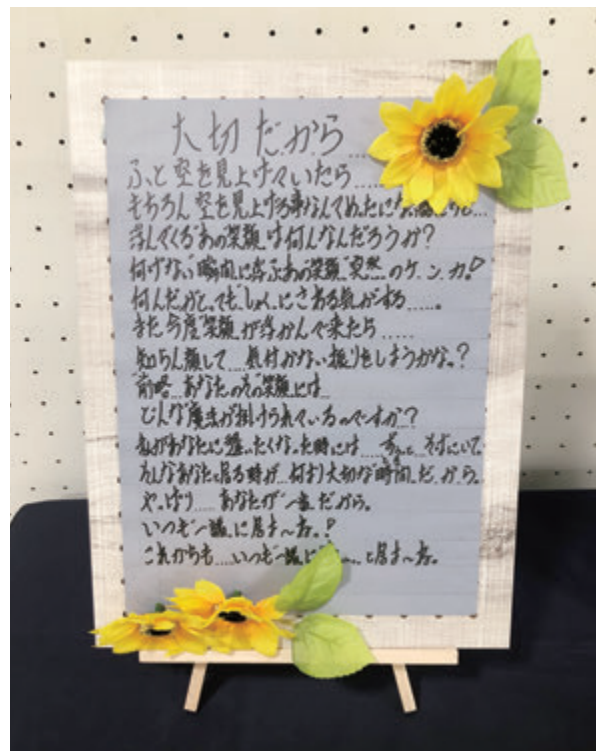 大切だから....
ふと空を見上げていたら.....
もちろん空を見上げる事なんてめったにな
浮んでくるあの笑顔は何んなんだろうか?
何げない瞬間に浮ぶあの笑顔"突然"のケ.ン.カ.!
何んだかとってもしゃくにさわる気がする.....。
また今度"笑顔"が浮かんで来たら.....
知らん顔して....気付かない振りをしようかな。?
"前略"...あなたのその"笑顔"には...
どんな魔法が掛けられているのですか?
私があなたに逢いたくなった時には....ずっとそばにいて。
そんなあなたと居る時が...何より大切な"時間"だ.か.ら。
やっぱり....あなたが"一番"だから。
いつも"一緒"に居ま〜す。!
これからも....いつも"一緒"に....と居ま〜す。